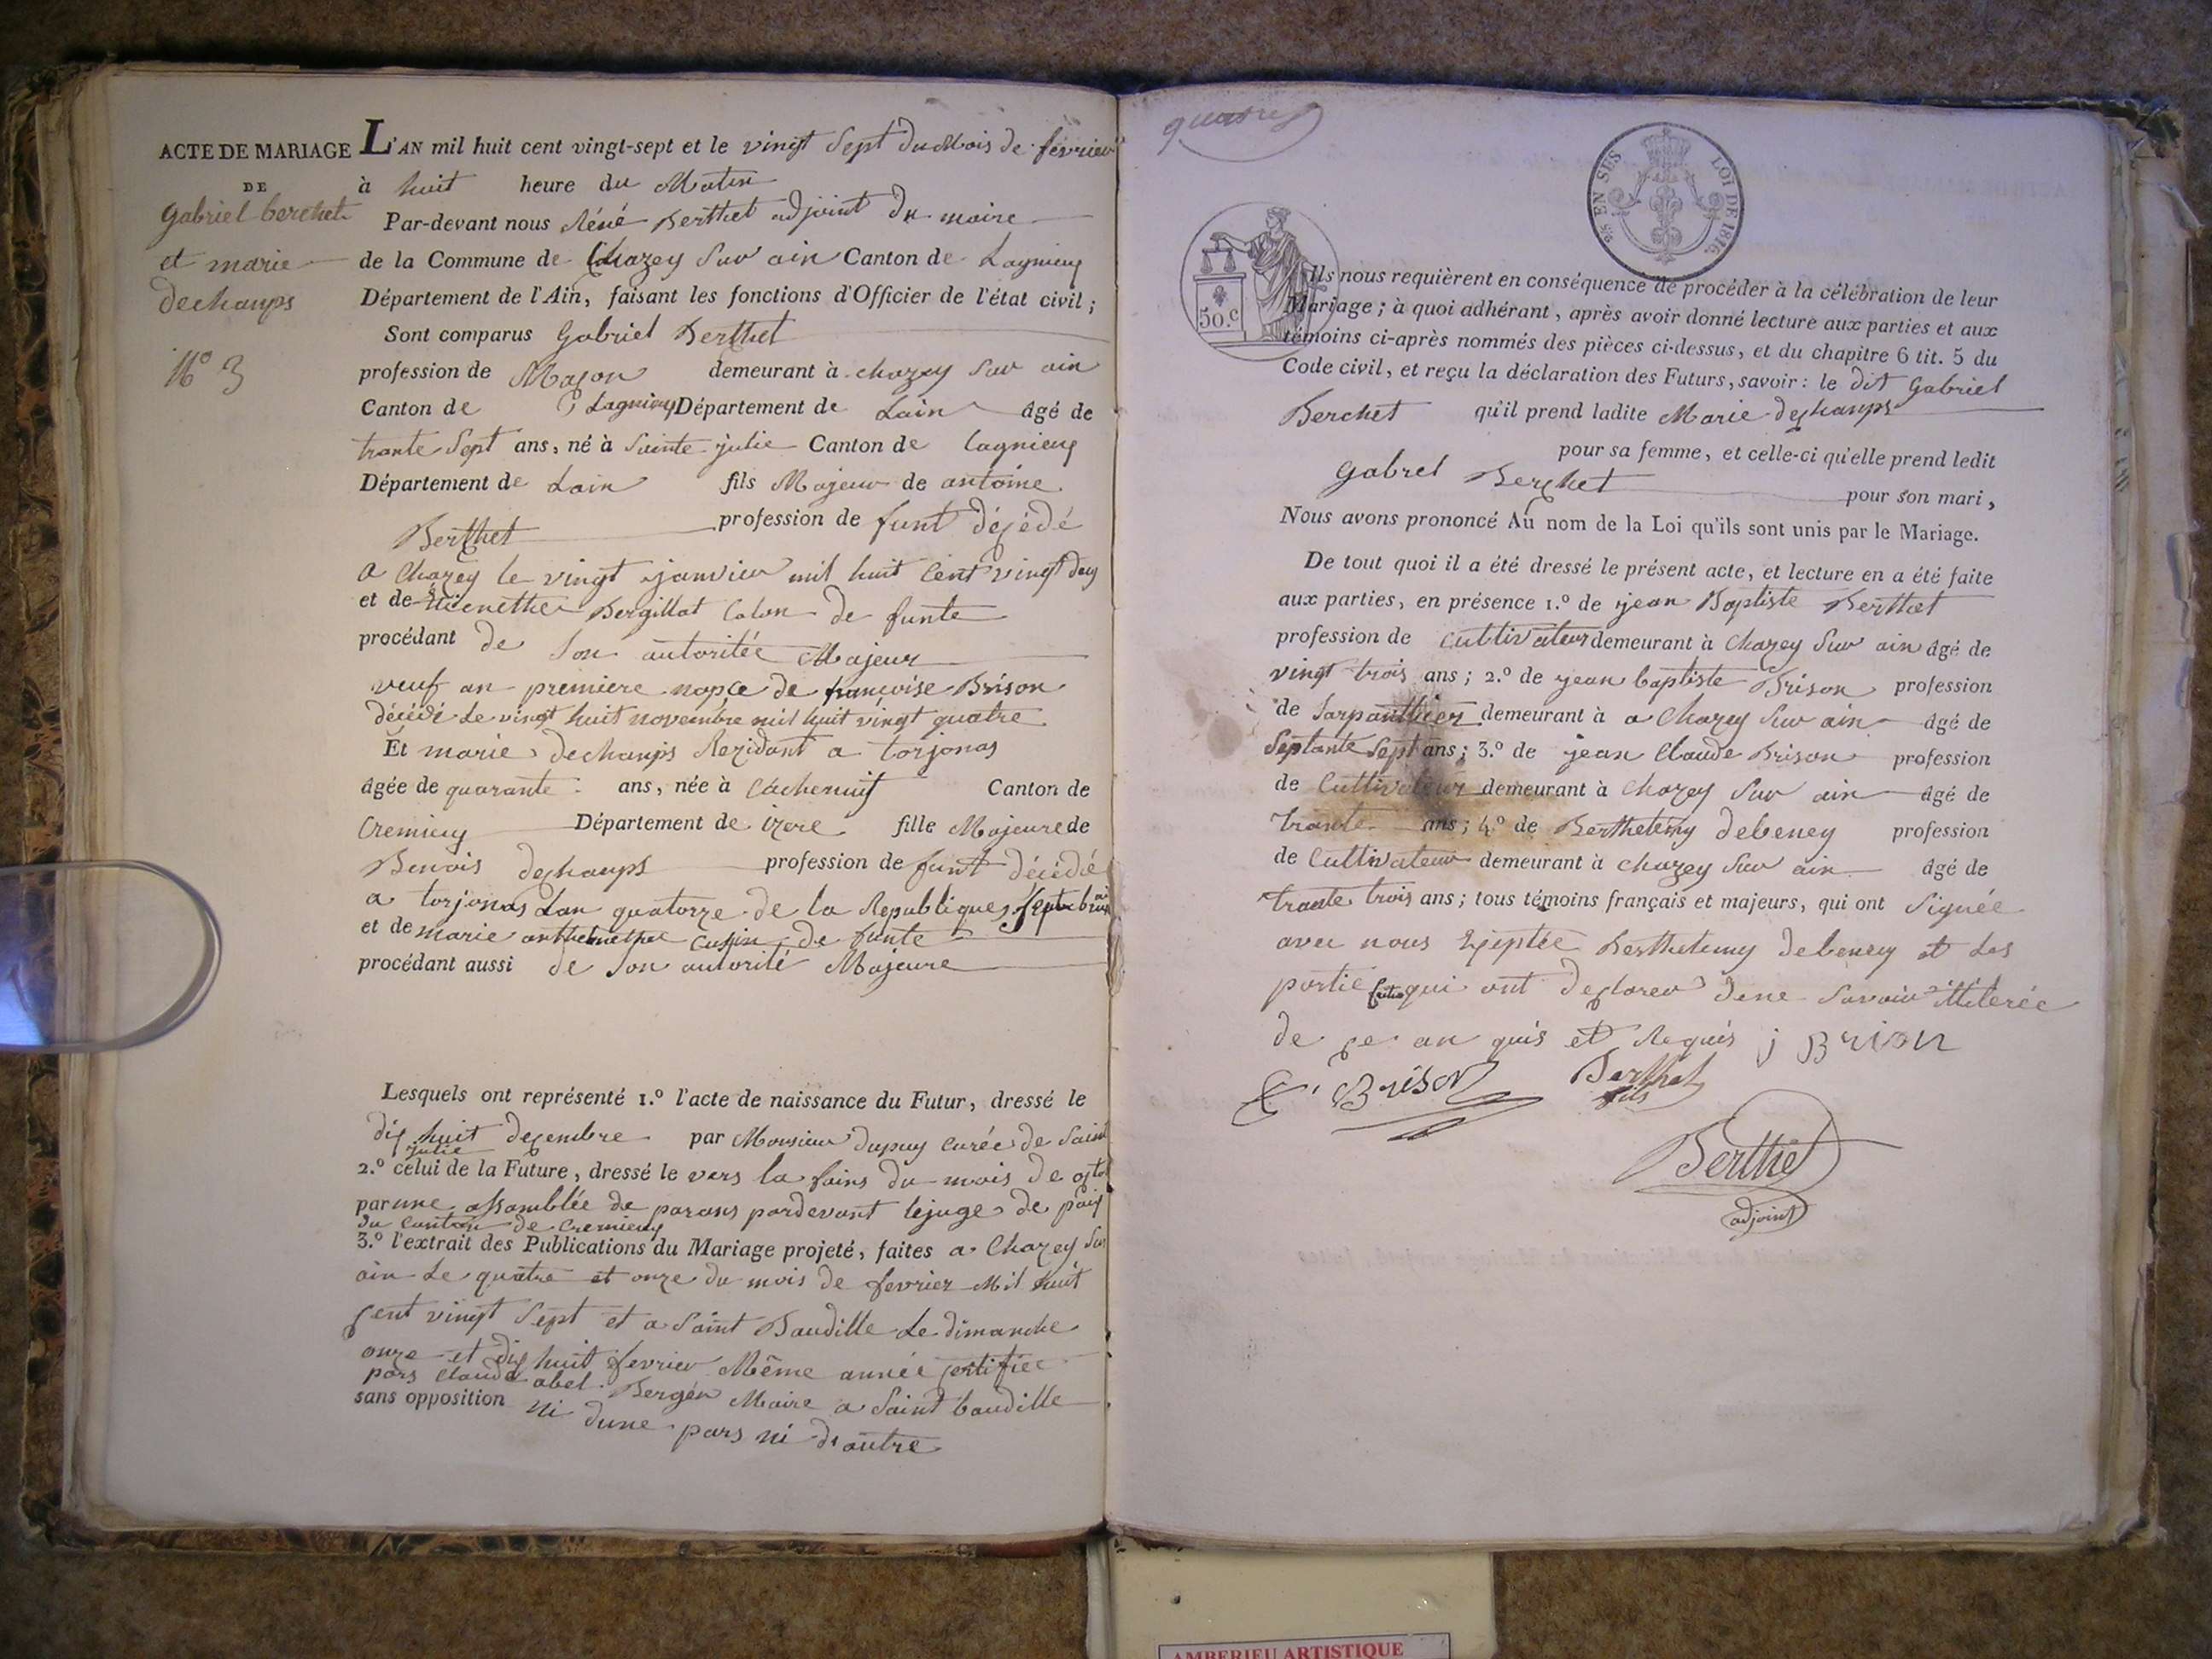 ACTE DE MARIAGE
DE
Gabriel berchet
et marie
dechamps
N° 3
L'AN mil huit cent vingt-sept et le vingt Sept du Mois de fevrier
à huit heure du Matin
Par-devant nous Réné Berthet adjoint du maire
de la Commune de Chazey Sur ain Canton de Lagnieux
Département de l'Ain, faisant les fonctions d'Officier de l'état civil ;
Sont comparus Gabriel Berthet
profession de Maçon demeurant à chazey Sur ain
Canton de Lagnieux Département de Lain âgé de
trante Sept ans, né à Sainte julie Canton de lagnieux
Département de Lain fils Majeur de antoine
Berthet profession de funt déçédé
a Chazey le vingt janvier mil huit Cent vingt deux
et de Bergillat Colon de funte
procédant de Son autoritée Majeur
veuf an premiere nopce de françoise Brison
décédé Le vingt huit novembre mil huit vingt quatre
Et marie dechamps Rezidant a torjonas
âgée de quarante ans, née à Canton de
Cremieux Département de izere fille Majeure de
Benois deschamps profession de funt décédé
a torjonas Lan quatorze de la Republiques
et de marie de funte
procédant aussi de Son autorité Majeure
Lesquels ont représenté 1.° l'acte de naissance du Futur, dressé le
dix huit decembre par Monsieur dupuy curée de Saint
julie
2.° celui de la Future, dressé le vers la fains du mois de
par une assamblée de parans pardevant lejuge de paix
du Canton de Cremieux
3.° l'extrait des Publications du Mariage projeté, faites a Chazey Sur
ain Le quatre et onze du mois de fevrier Mil huit
çent vingt Sept et a Saint Baudille Le dimanche
onze et dix huit fevrier Même année certifiée
pars Claude abel Bergér Maire a Saint baudille
sans opposition ni dune pars ni d'autre
quatre
EN SUS
LOI DE 1816
50.c
Ils nous requièrent en conséquence de procéder à la célébration de leur
Mariage ; à quoi adhérant, après avoir donné lecture aux parties et aux
témoins ci-après nommés des pièces ci-dessus, et du chapitre 6 tit. 5 du
Code civil, et reçu la déclaration des Futurs, savoir : le dit Gabriel
Berchet qu'il prend ladite Marie deshamps
pour sa femme, et celle-ci qu'elle prend ledit
Gabrel Berchet pour son mari,
Nous avons prononcé Au nom de la Loi qu'ils sont unis par le Mariage.
De tout quoi il a été dressé le présent acte, et lecture en a été faite
aux parties, en présence 1.° de jean Baptiste Berthet
profession de Cultivateur demeurant à Chazey Sur ain âgé de
vingt trois ans ; 2.° de jean baptiste Brison profession
de demeurant à a Chazey Sur ain âgé de
Septante Sept ans ; 3.° de jean Claude Brison profession
de Cultivateur demeurant à Chazey Sur ain âgé de
trante ans ; 4.° de Berthelemy debeney profession
de Cultivateur demeurant à Chazey Sur ain âgé de
trante trois ans ; tous témoins français et majeurs, qui ont Signée
avec nous Exeptée Berthelemy debeney et Les
partie qui ont declarer dene Savoir
de çe an quis et Requis j Brison
C. Brison
Berthet
fils
Berthet
adjoint
AMBERIEU ARTISTIQUE